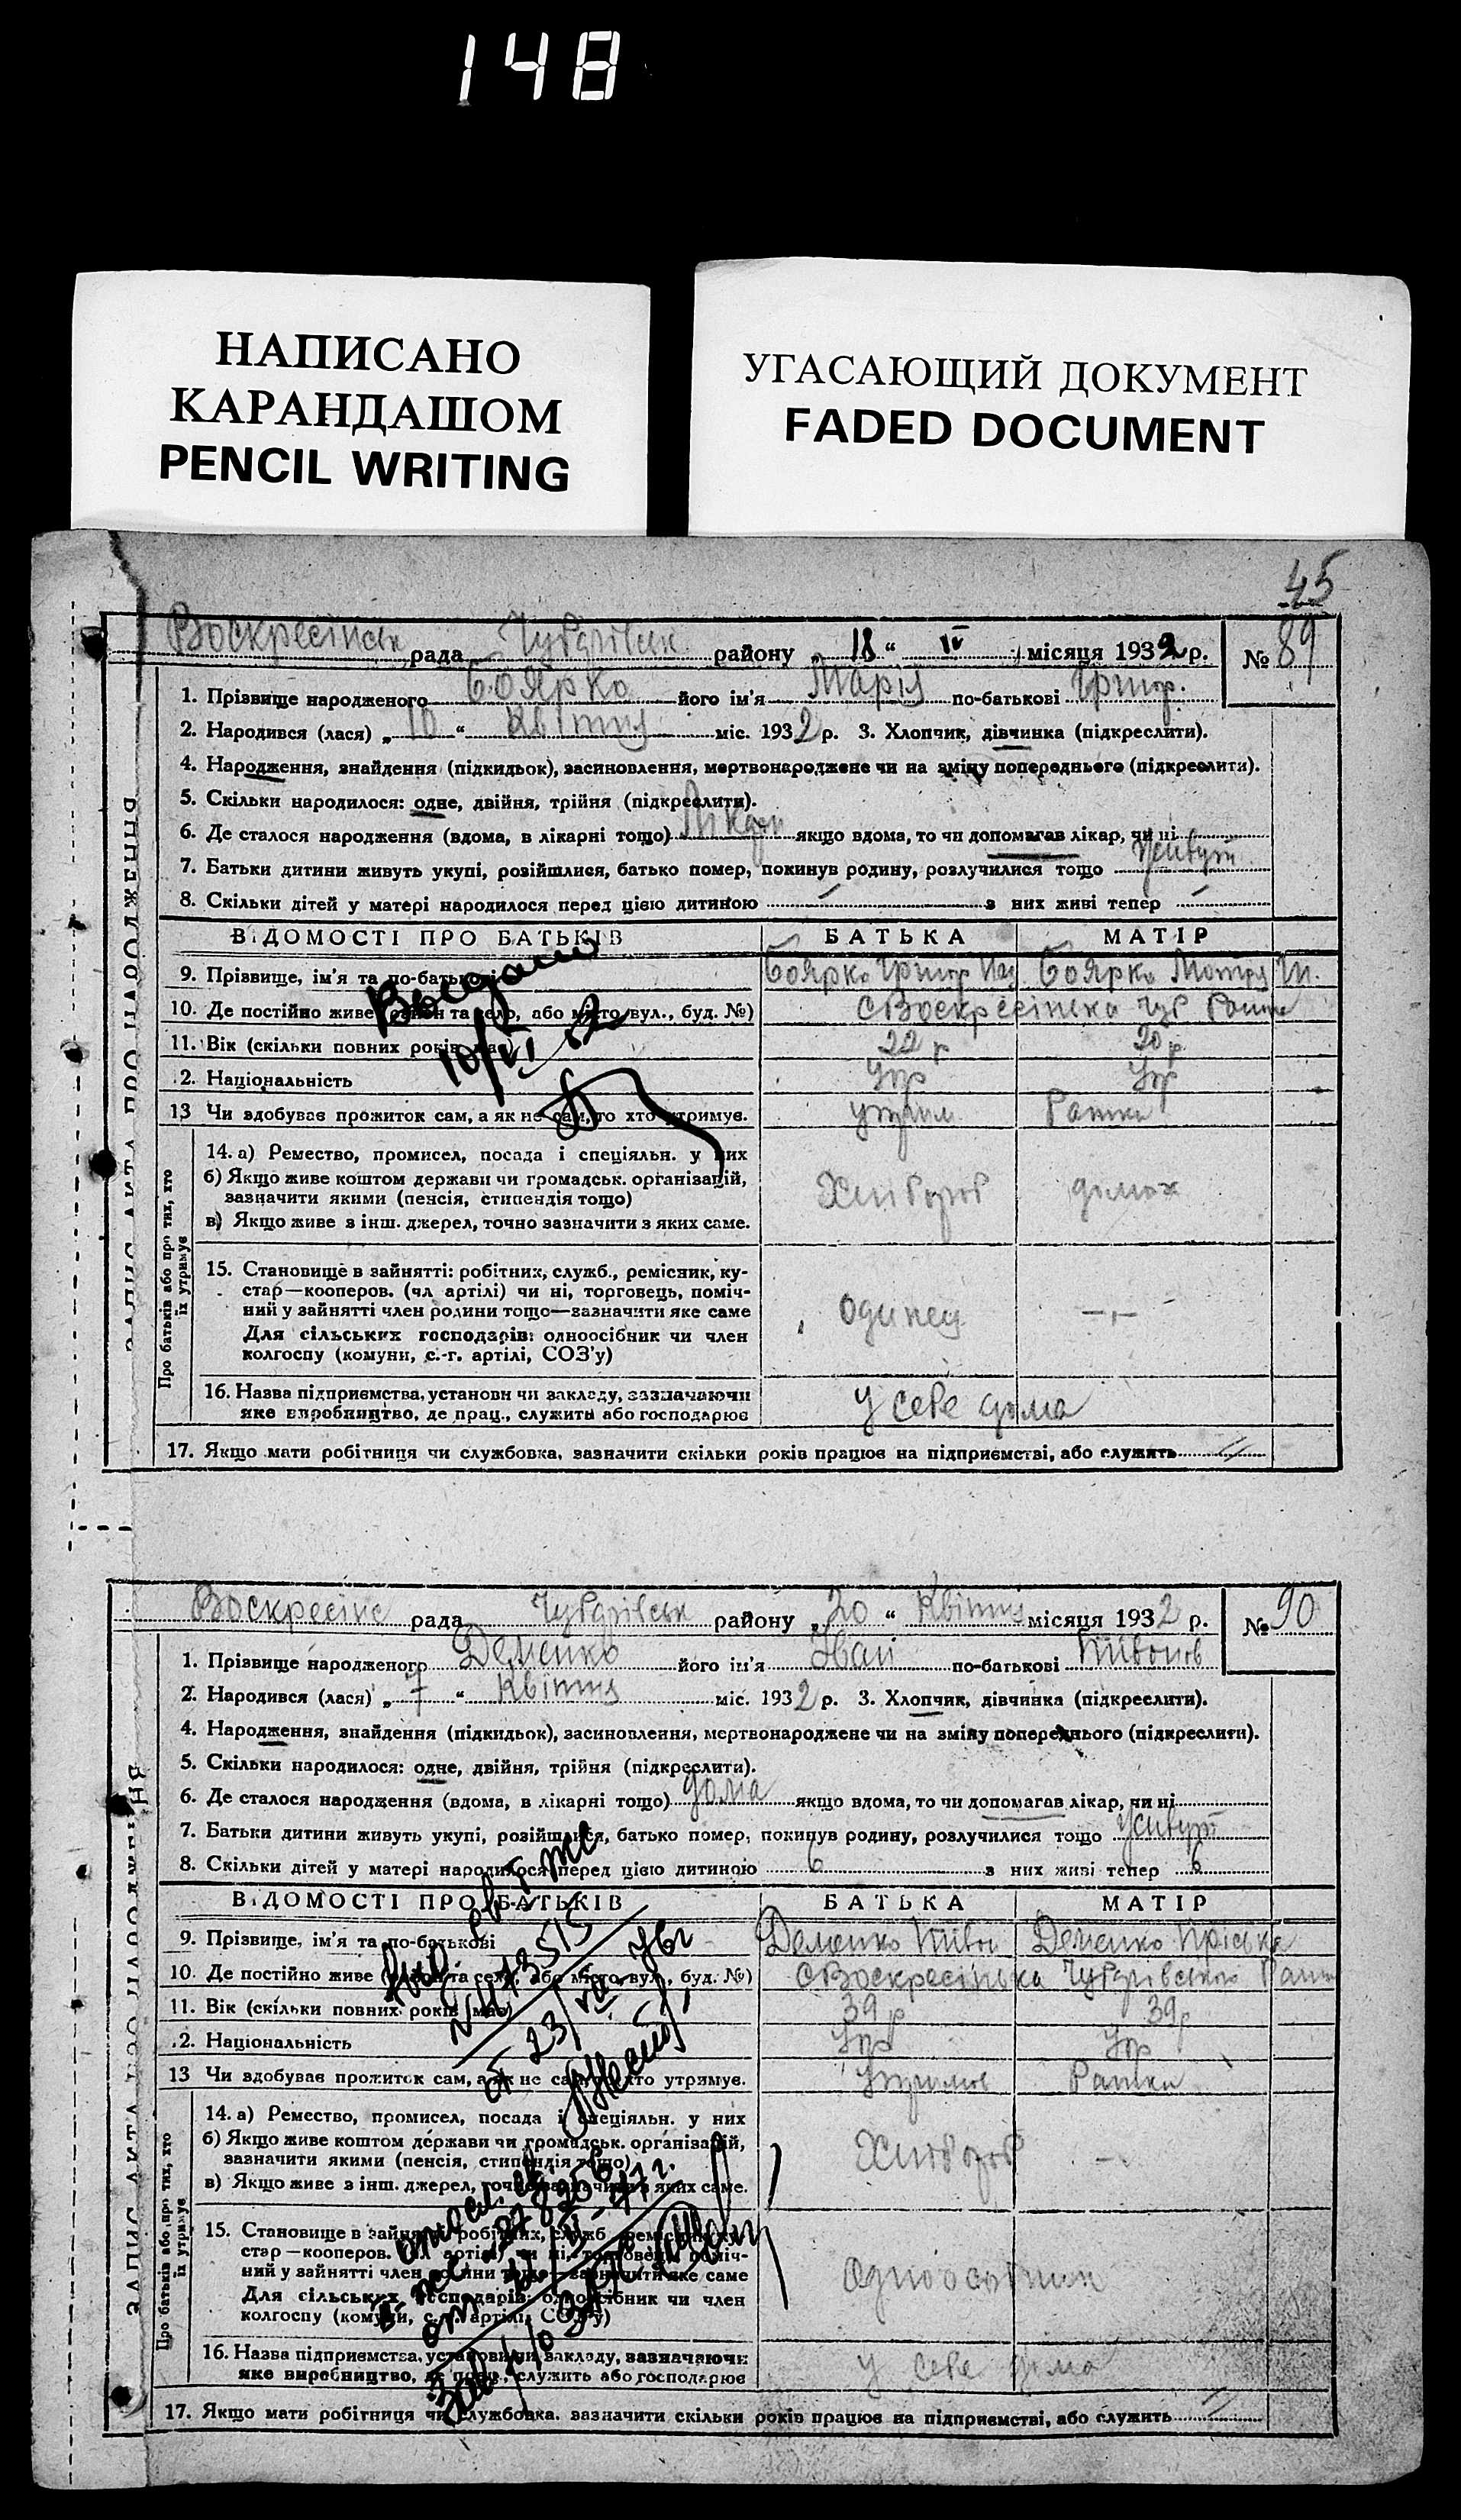 148
НАПИСАНО
КАРАНДАШОМ
PENCIL WRITING
УГАСАЮЩИЙ ДОКУМЕНТ
FADED DOCUMENT
45
Воскресінськ рада Чубарівськ району „ 18 “ IV місяця 1932 р. № 89
1. Прізвище народженого Боярко його ім'я Марія по-батькові Григор.
2. Народився (лася) „ 10 “ Квітня міс. 1932 р. 3. Хлопчик, дівчинка (підкреслити).
4. Народження, знайдення (підкидьок), засиновлення, мертвонароджене чи на зміну попереднього (підкреслити).
5. Скільки народилося: одне, двійня, трійня (підкреслити).
6. Де сталося народження (вдома, в лікарні тощо) якщо вдома, то чи допомагав лікар, чи ні
7. Батьки дитини живуть укупі, розійшлися, батько помер, покинув родину, розлучилися тощо живут
8. Скільки дітей у матері народилося перед цією дитиною — з них живі тепер —
ВІДОМОСТІ ПРО БАТЬКІВ БАТЬКА МАТІР
9. Прізвище, ім'я та по-батькові Боярко Григор Боярко Мотря
10. Де постійно живе (район та село, або місто вул., буд. №) С Воскресінська Чуб
11. Вік (скільки повних років має) 22 р 20 р
12. Національність Укр Укр
13 Чи здобуває прожиток сам, а як не сам, то хто утримує.
Видано
10/VI
Про батьків або про тих, хто їх утримує
14. а) Ремество, промисел, посада і спеціяльн. у них
б) Якщо живе коштом держави чи громадськ. організацій,
зазначити якими (пенсія, стипендія тощо)
в) Якщо живе з інш. джерел, точно зазначити з яких саме.
Хлібороб домох
15. Становище в зайнятті: робітник, служб., ремісник, ку-
стар—кооперов. (чл артілі) чи ні, торговець, поміч-
ний у зайнятті член родини тощо—зазначити яке саме
Для сільських господарів: одноосібник чи член
колгоспу (комуни, с.-г. артілі, СОЗ'у)
одинец —„—
16. Назва підприємства, установи чи закладу, зазначаючи
яке виробництво, де прац., служить або господарює
у себе дома
17. Якщо мати робітниця чи службовка, зазначити скільки років працює на підприємстві, або служить
ЗАПИС АКТА ПРО НАРОДЖЕННЯ
Воскресінс рада Чубарівськ району „ 20 “ Квітня місяця 1932 р. № 90
1. Прізвище народженого Деменко його ім'я Іван по-батькові Пивонов
2. Народився (лася) „ 7 “ Квітня міс. 1932 р. 3. Хлопчик, дівчинка (підкреслити).
4. Народження, знайдення (підкидьок), засиновлення, мертвонароджене чи на зміну попереднього (підкреслити).
5. Скільки народилося: одне, двійня, трійня (підкреслити).
6. Де сталося народження (вдома, в лікарні тощо) дома якщо вдома, то чи допомагав лікар, чи ні
7. Батьки дитини живуть укупі, розійшлися, батько помер, покинув родину, розлучилися тощо живут
8. Скільки дітей у матері народилося перед цією дитиною 6 з них живі тепер 6
ВІДОМОСТІ ПРО БАТЬКІВ БАТЬКА МАТІР
9. Прізвище, ім'я та по-батькові Деменко Пивон Деменко Пріська
10. Де постійно живе (район та село, або місто вул., буд. №) С Воскресінська Чубарівського
11. Вік (скільки повних років має) 39 р 39 р
12. Національність Укр Укр
13 Чи здобуває прожиток сам, а як не сам, то хто утримує.
Про батьків або про тих, хто їх утримує
14. а) Ремество, промисел, посада і спеціяльн. у них
б) Якщо живе коштом держави чи громадськ. організацій,
зазначити якими (пенсія, стипендія тощо)
в) Якщо живе з інш. джерел, точно зазначити з яких саме.
Хлібороб —
15. Становище в зайнятті: робітник, служб., ремісник, ку-
стар—кооперов. (чл артілі) чи ні, торговець, поміч-
ний у зайнятті член родини тощо—зазначити яке саме
Для сільських господарів: одноосібник чи член
колгоспу (комуни, с.-г. артілі, СОЗ'у)
одноосібник
16. Назва підприємства, установи чи закладу, зазначаючи
яке виробництво, де прац., служить або господарює
у себе дома
17. Якщо мати робітниця чи службовка, зазначити скільки років працює на підприємстві, або служить
ЗАПИС АКТА ПРО НАРОДЖЕННЯ